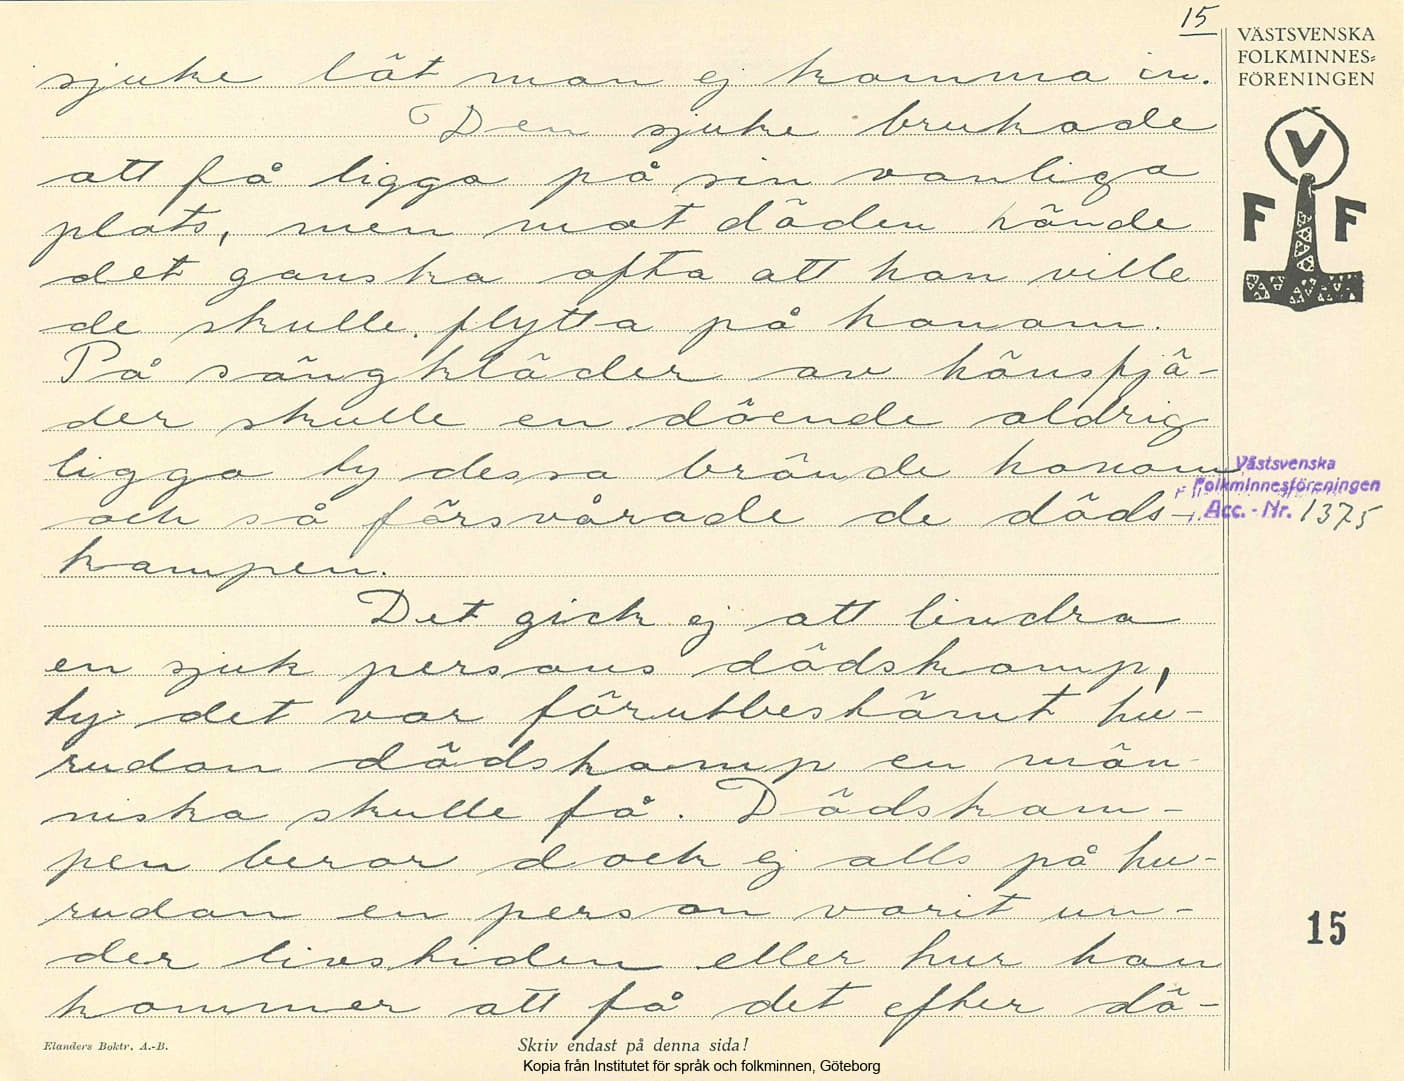 15
VÄSTSVENSKA
FOLKMINNES=
FÖRENINGEN
V
F F
sjuke lät man ej komma in.
Den sjuke brukade
att få ligga på sin vanliga
plats, men mot döden hände
det ganska ofta att han ville
de skulle flytta på honom.
På sängkläder av hönsfjä-
der skulle en döende aldrig
ligga ty dessa brände honom
och så försvårade de döds-
kampen.
Det gick ej att lindra
en sjuk persons dödskamp,
ty det var förutbestämt hu-
rudan dödskamp en män-
niska skulle få. Dödskam-
pen beror dock ej alls på hu-
rudan en person varit un-
der livstiden eller hur han
kommer att få det efter dö-
Västsvenska
Folkminnesföreningen
Acc.-Nr. 1375
15
Elanders Boktr. A.-B.
Skriv endast på denna sida!
Kopia från Institutet för språk och folkminnen, Göteborg